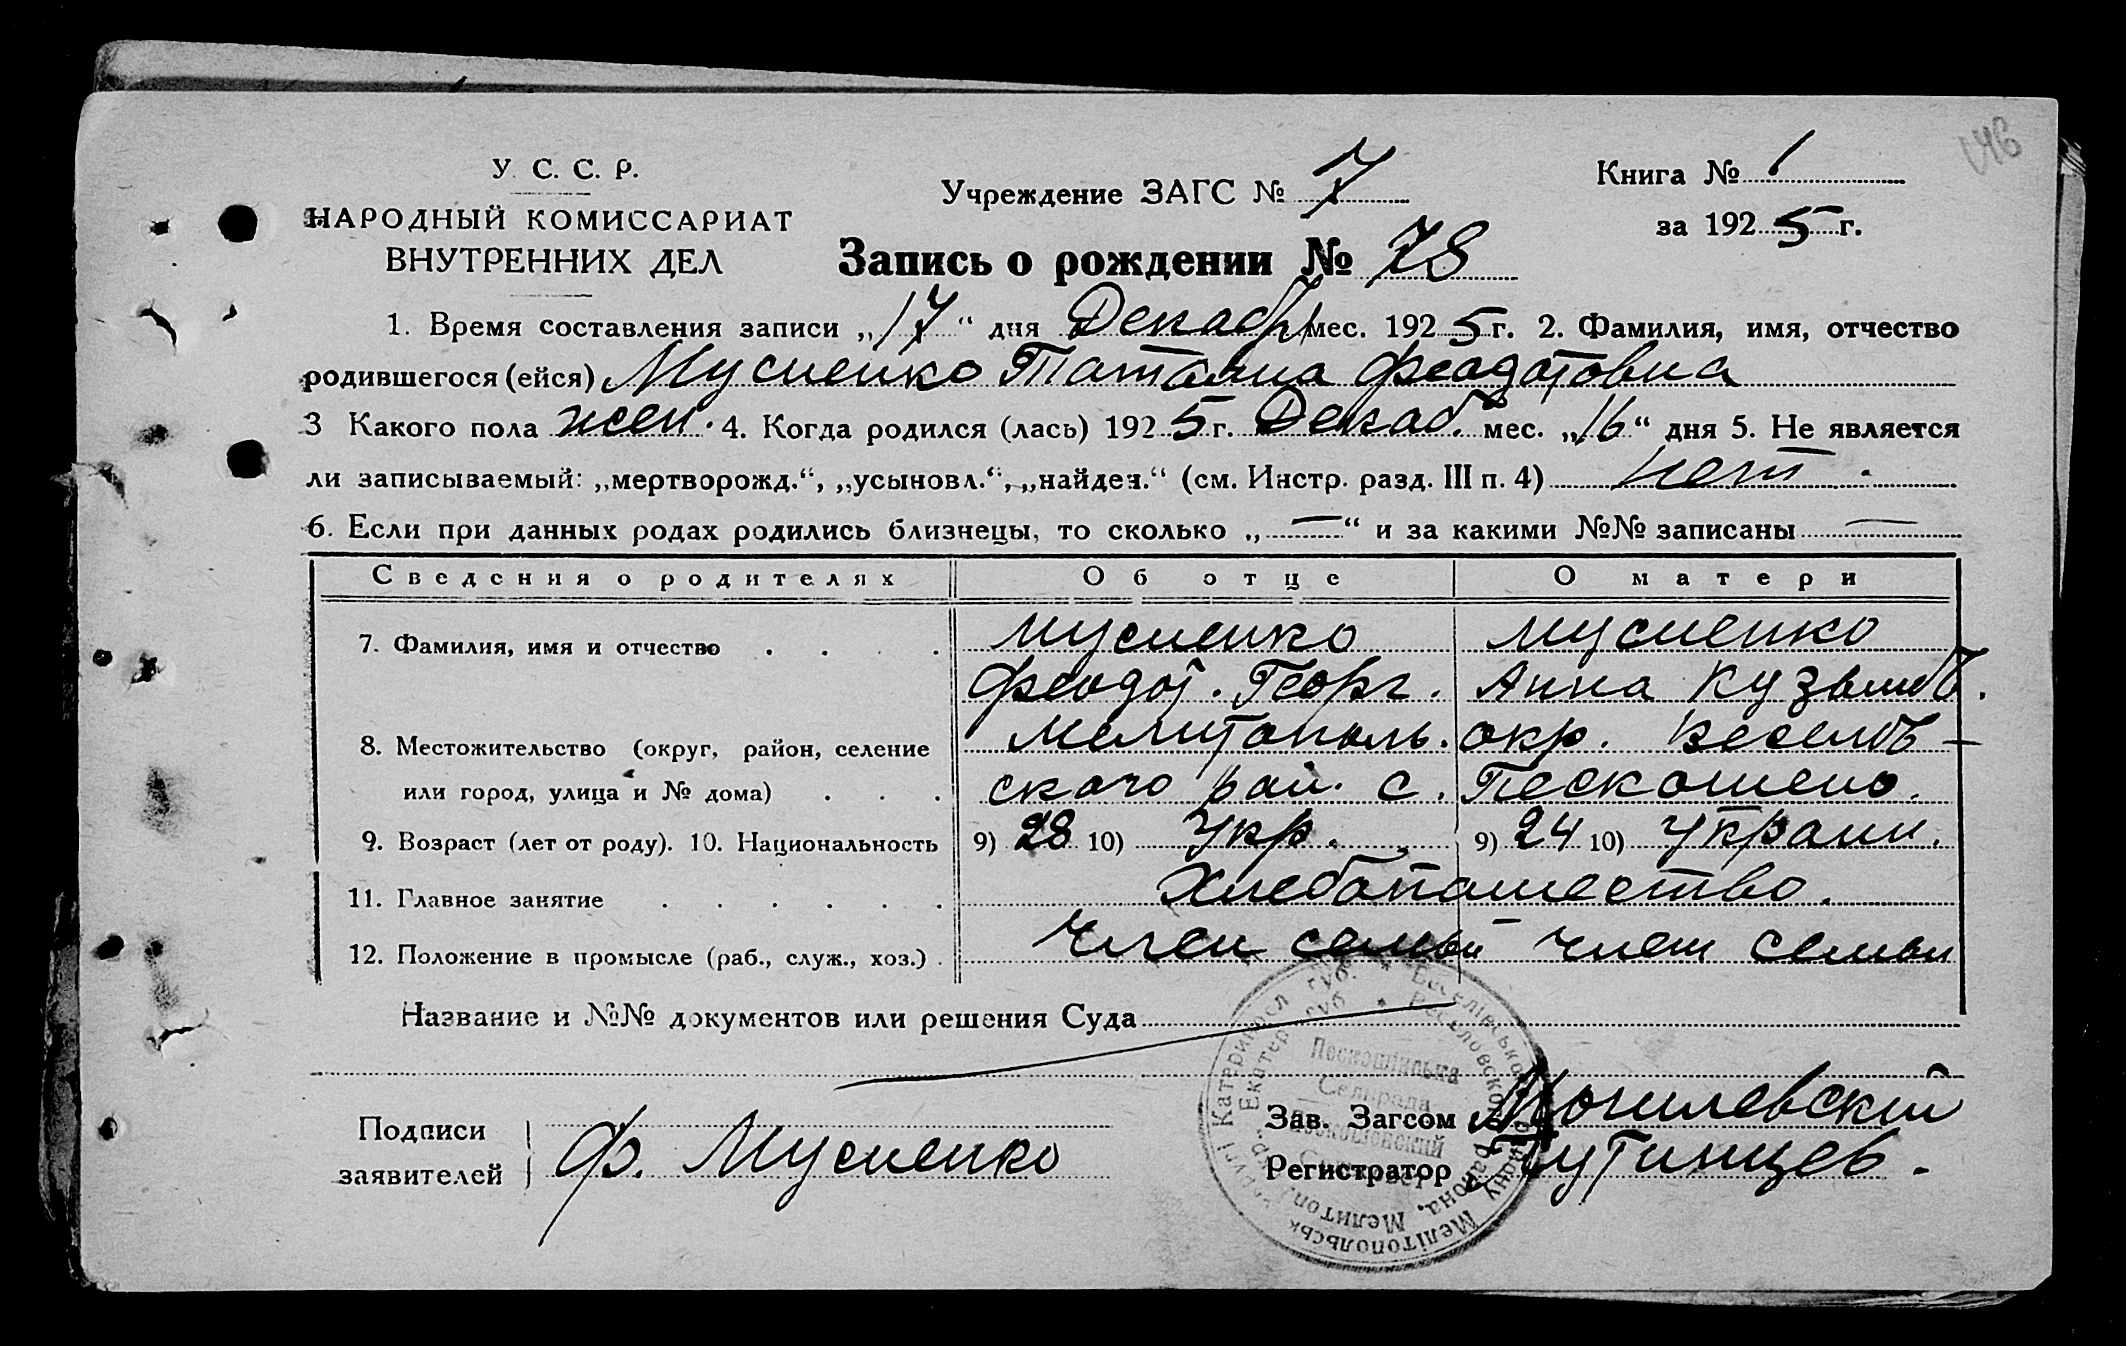 146
У. С. С. Р.
НАРОДНЫЙ КОМИССАРИАТ
ВНУТРЕННИХ ДЕЛ
Учреждение ЗАГС № 7
Книга № 1
за 1925 г.
Запись о рождении № 78
1. Время составления записи „17“ дня Декабр мес. 1925 г. 2. Фамилия, имя, отчество
родившегося (ейся) Мусиенко Татьяна Феодотовна
3 Какого пола жен. 4. Когда родился (лась) 1925 г. Декаб. мес. „16“ дня 5. Не является
ли записываемый: „мертворожд.“, „усыновл.“, „найден.“ (см. Инстр. разд. III п. 4) нет.
6. Если при данных родах родились близнецы, то сколько „—“ и за какими №№ записаны —
Сведения о родителях Об отце О матери
7. Фамилия, имя и отчество Мусиенко Мусиенко
Феодот. Георг. Анна Кузьмов.
8. Местожительство (округ, район, селение Мелитополь. окр. Веселов-
или город, улица и № дома) ского рай. с. Пескошено.
9. Возраст (лет от роду). 10. Национальность 9) 28 10) Укр. 9) 24 10) Украин.
11. Главное занятие Хлебопашество.
12. Положение в промысле (раб., служ., хоз.) Член семьи член семьи
Название и №№ документов или решения Суда
Подписи
заявителей Ф. Мусиенко
Зав. Загсом Могилевский
Регистратор Путинцев.
Катериносл губ. * Веселівського району Мелітопольськ
Екатер губ * Веселовского района, Мелитоп. окр.
Пескошинська
Сельрада
Пескошенский